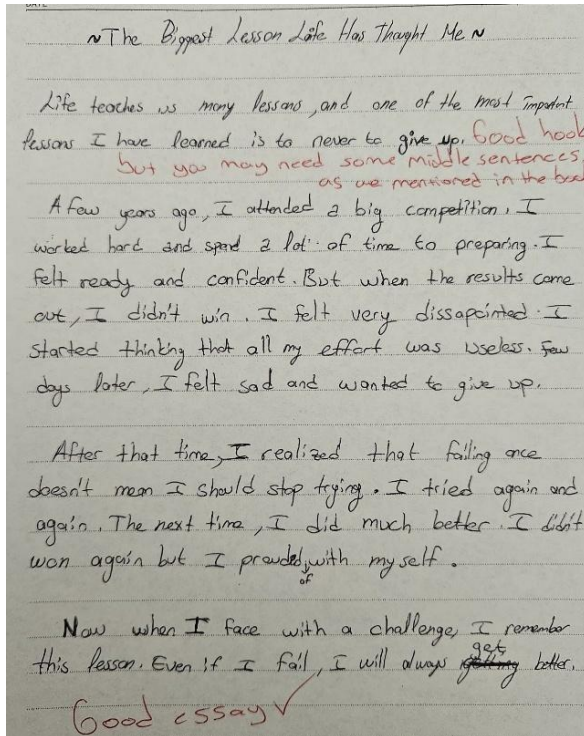 ~The Biggest Lesson Life Has Thaught Me~
Life teaches us many lessons, and one of the most important
lessons I have learned is to never to give up. Good hook
but you may need some middle sentences
as we mentioned in the
A few years ago, I attended a big competition. I
worked hard and spend a lot of time to preparing. I
felt ready and confident. But when the results came
out, I didn't win. I felt very dissapointed. I
started thinking that all my effort was useless. Few
days later, I felt sad and wanted to give up.
After that time, I realized that failing once
doesn't mean I should stop trying. I tried again and
again. The next time, I did much better. I didn't
won again but I prouded with myself.
of
Now when I face with a challenge, I remember
get
this lesson. Even if I fail, I will always better.
Good essay ✓